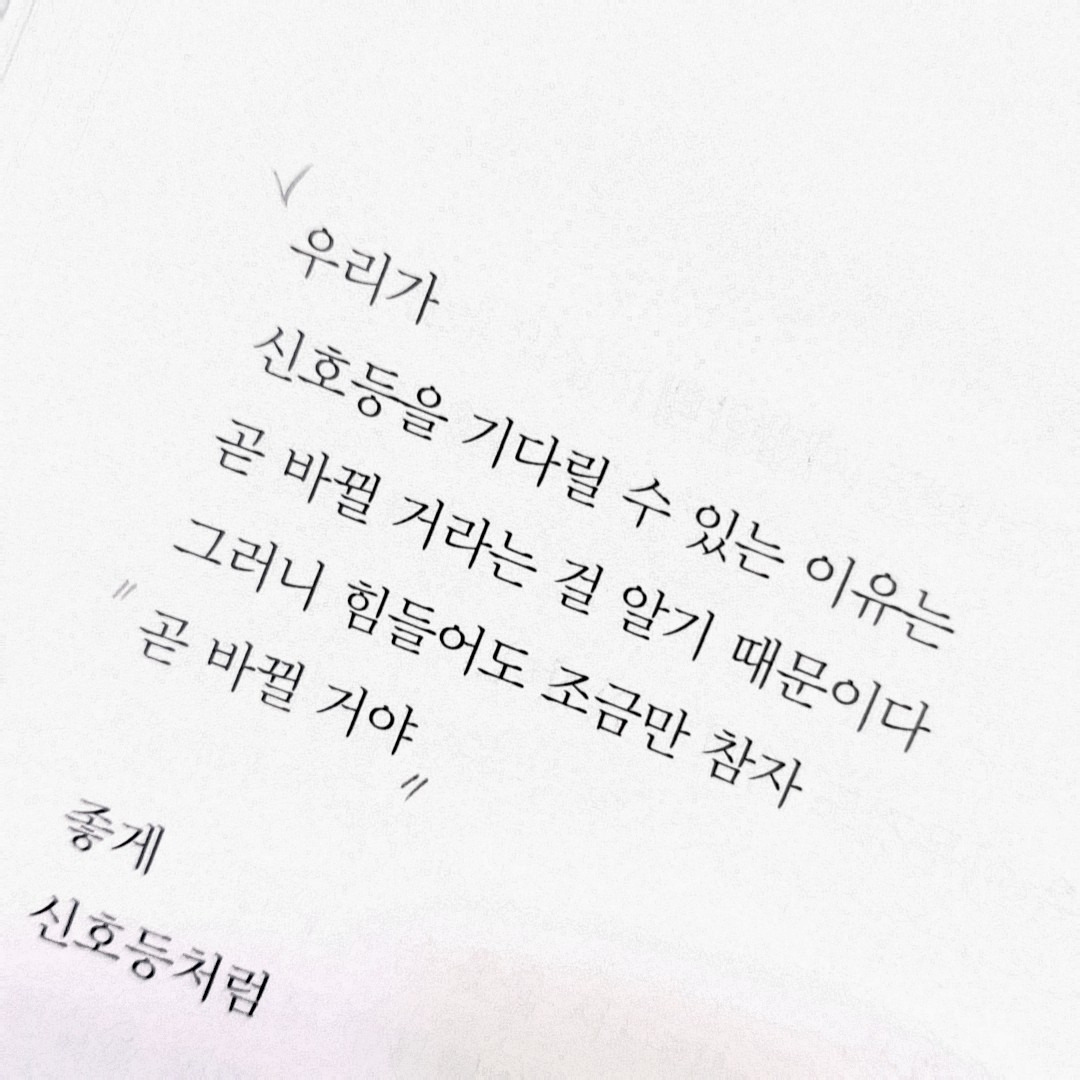 우리가
신호등을 기다릴 수 있는 이유는
곧 바뀔 거라는 걸 알기 때문이다
그러니 힘들어도 조금만 참자
"곧 바뀔 거야"
좋게
신호등처럼